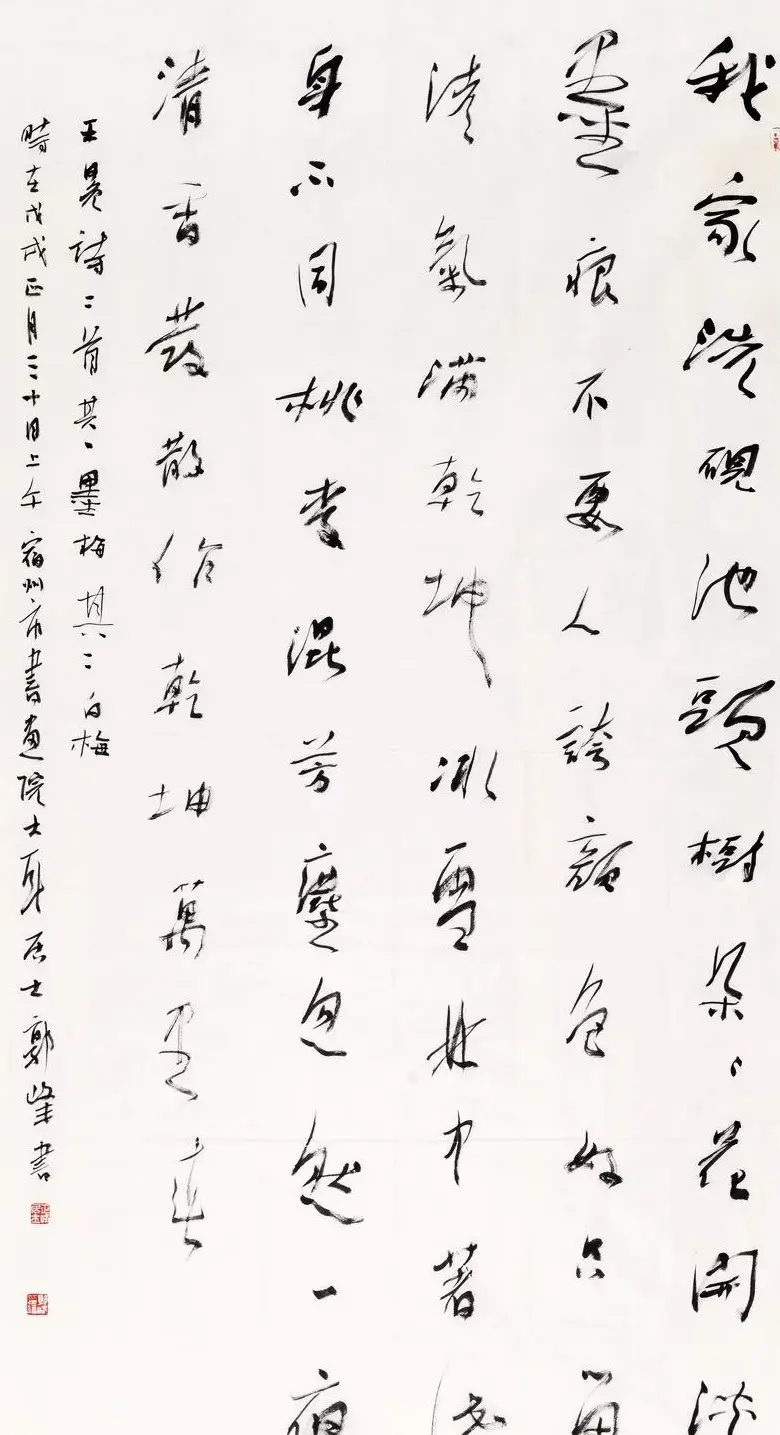 我家洗硯池頭樹朵々花開淡
墨痕不要人誇顏色好只留
清氣滿乾坤冰雪林中著此
身不同桃李混芳塵忽然一夜
清香發散作乾坤萬里春
王冕詩二首其一墨梅其二白梅
時在戊戌正月三十日上午宿州市書畫院士耳居士郭峰書